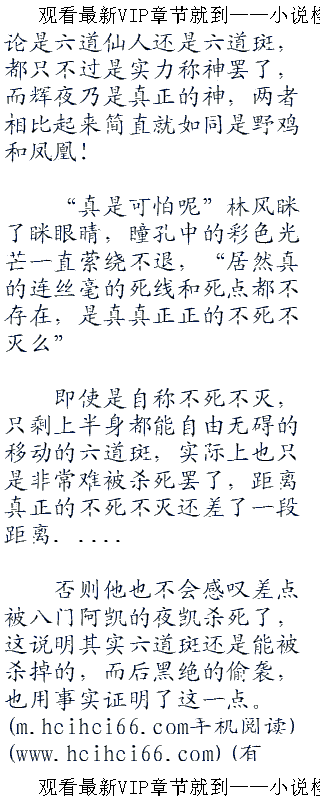 观看最新VIP章节就到——小说检
论是六道仙人还是六道斑，
都只不过是实力称神罢了，
而辉夜乃是真正的神，两者
相比起来简直就如同是野鸡
和凤凰！
“真是可怕呢”林风眯
了眯眼睛，瞳孔中的彩色光
芒一直萦绕不退，“居然真
的连丝毫的死线和死点都不
存在，是真真正正的不死不
灭么”
即使是自称不死不灭，
只剩上半身都能自由无碍的
移动的六道斑，实际上也只
是非常难被杀死罢了，距离
真正的不死不灭还差了一段
距离．．．．．
否则他也不会感叹差点
被八门阿凯的夜凯杀死了，
这说明其实六道斑还是能被
杀掉的，而后黑绝的偷袭，
也用事实证明了这一点。
(m.hcihci66.com手机阅读)
(www.hcihci66.com)(有
观看最新VIP章节就到——小说检